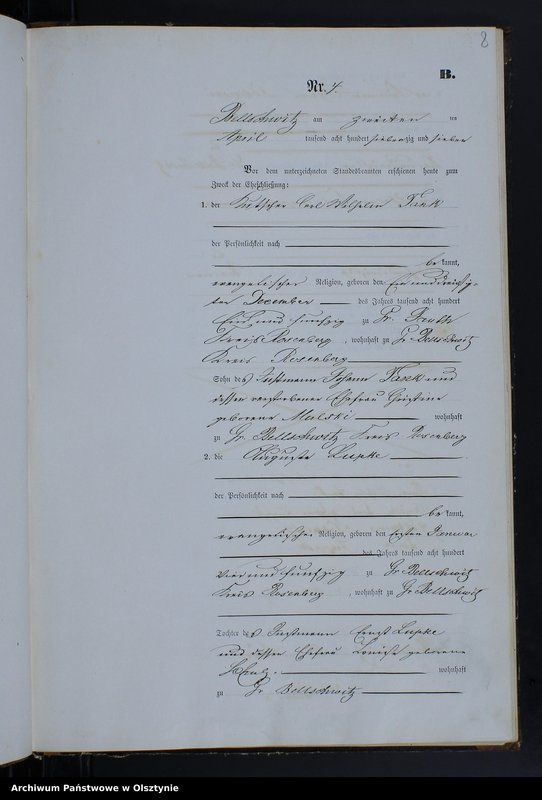 8
B.
Nr. 4.
Bellschwitz am zweiten ten
April tausend acht hundert siebenzig und sieben
Vor dem unterzeichneten Standesbeamten erschienen heute zum
Zweck der Eheschließung:
1. der Kutscher Carl Wilhelm
der Persönlichkeit nach
be kannt,
evangelischer Religion, geboren den ein und dreißig-
ten December des Jahres tausend acht hundert
fünf und fünfzig zu Gr.
Kreis Rosenberg, wohnhaft zu Gr Bellschwitz
Kreis Rosenberg
Sohn des Instmann Johann und
dessen verstorbener Ehefrau Christine
geborene Malski wohnhaft
zu Gr Bellschwitz Kreis Rosenberg
2. die Auguste Lupke
der Persönlichkeit nach
be kannt,
evangelischer Religion, geboren den ersten Januar
des Jahres tausend acht hundert
vier und fünfzig zu Gr Bellschwitz
Kreis Rosenberg, wohnhaft zu Gr Bellschwitz
Tochter des Instmann Ernst Lupke
und dessen Ehefrau Louise geborene
wohnhaft
zu Gr Bellschwitz
Archiwum Państwowe w Olsztynie